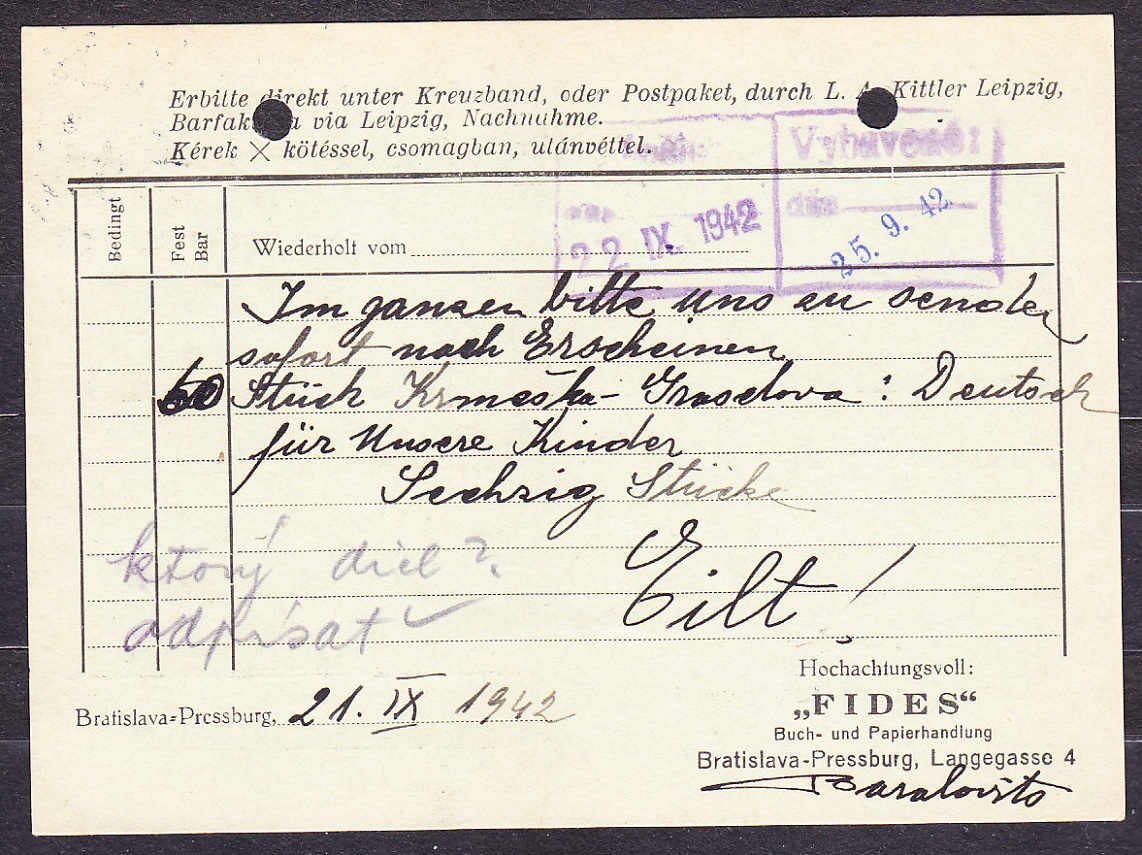 Erbitte direkt unter Kreuzband, oder Postpaket, durch L. A. Kittler Leipzig,
via Leipzig, Nachnahme.
Kérek × kötéssel, csomagban, utánvéttel.
Vybavené:
dňa
22 IX. 1942
25. 9. 42
Bedingt
Fest
Bar
Wiederholt vom
Im ganzen bitte uns zu senden
sofort nach Erscheinen
60 Stück Krmeška- : Deutsch
für Unsere Kinder
Sechzig Stücke
ktorý diel?
odpísať
Eilt!
Hochachtungsvoll:
„FIDES“
Buch- und Papierhandlung
Bratislava-Pressburg, Langegasse 4
Bratislava-Pressburg, 21. IX 1942